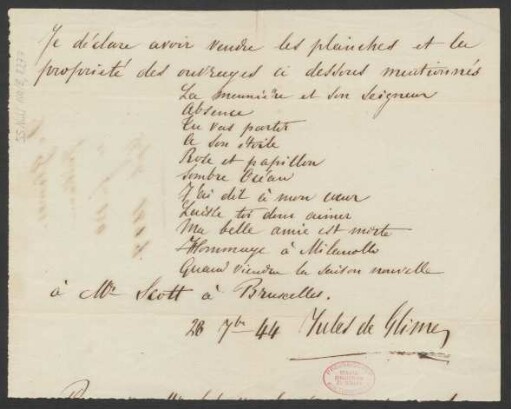 Je déclare avoir vendre les planches et la
propriété des ouvrages ci dessous mentionnés
La meunière et son seigneur
Absence
Tu vas partir
à son étoile
Rose et papillon
Sombre Océan
J'ai dit à mon cœur
Laisse toi donc aimer
Ma belle amie est morte
L'Hommage à Milanollo
Quand viendra la saison nouvelle
à Mr Scott à Bruxelles.
28 7bre 44 Jules de Glimes